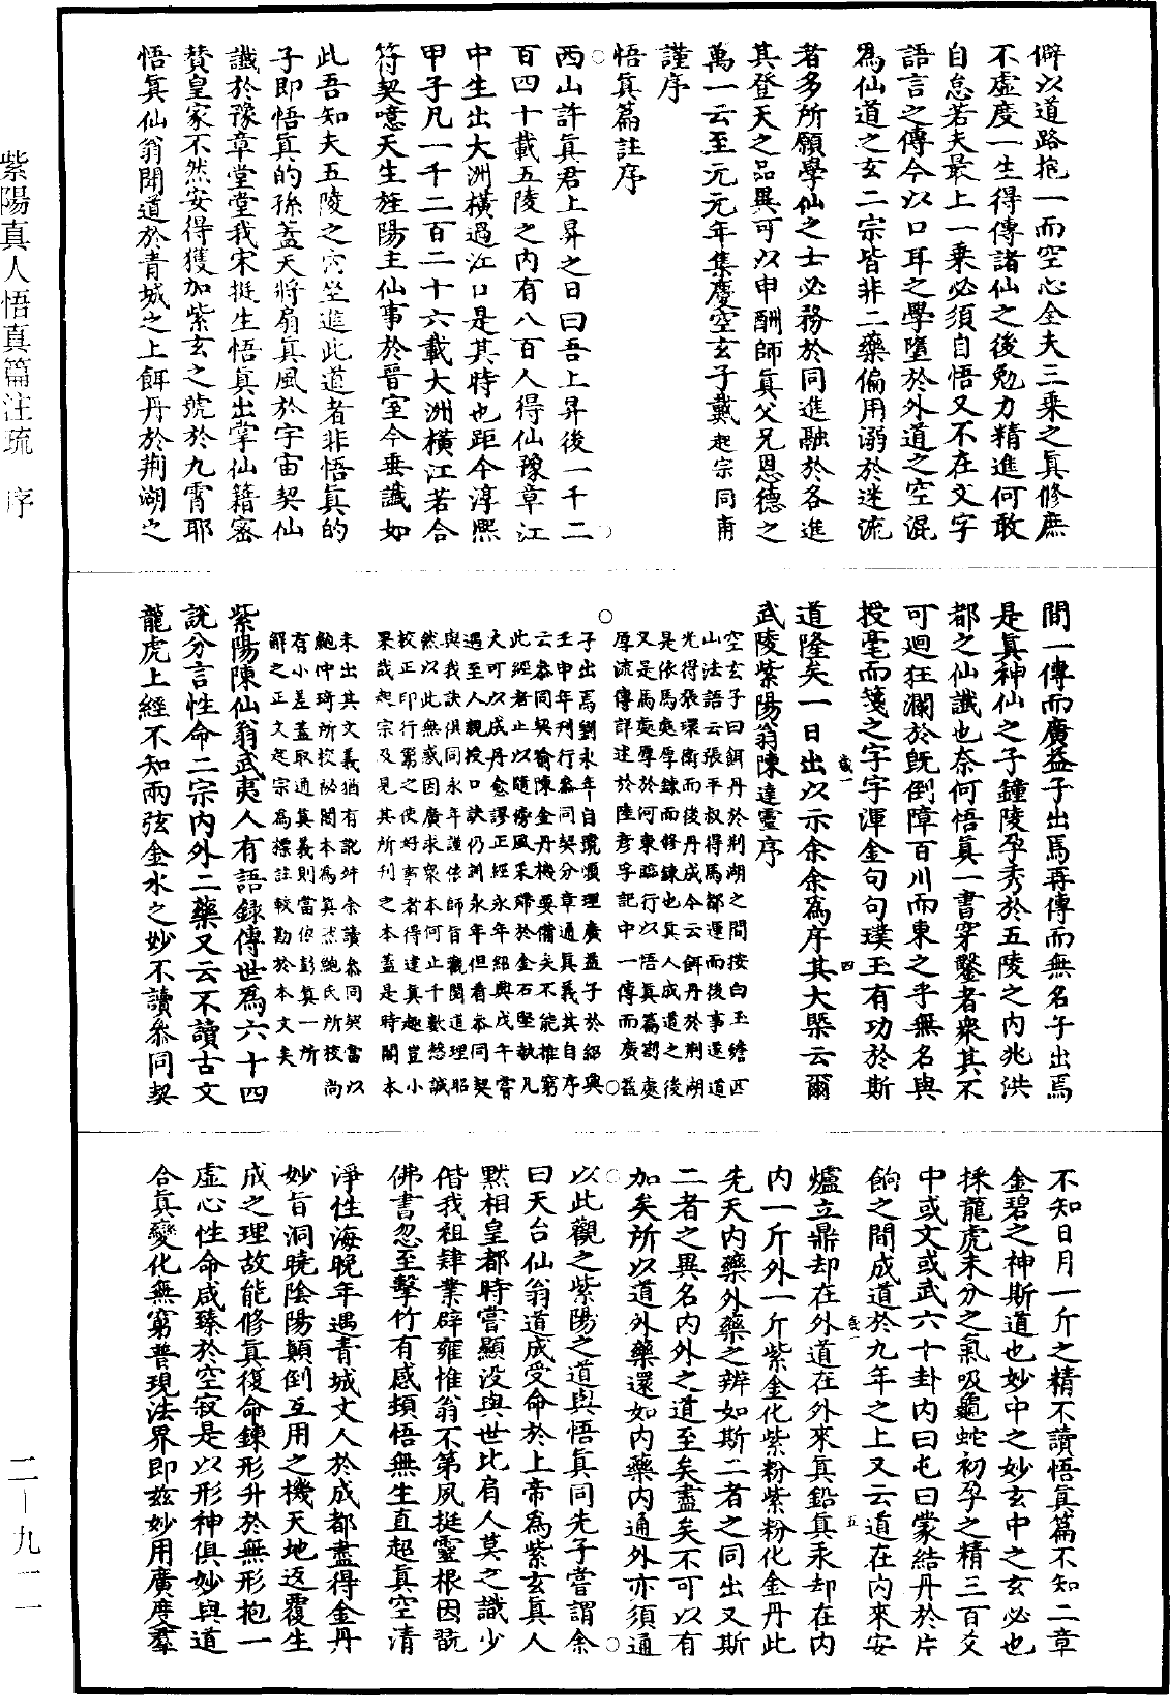 僻以道路抱一而空心全夫三乘之眞修庶
不虛度一生得傳諸仙之後勉力精進何敢
自怠若夫最上一乘必須自悟又不在文字
語言之傳今以口耳之學墮於外道之空混
為仙道之玄二宗皆非二藥偏用溺於迷流
者多所願學仙之士必務於同進融於各進
其登天之品異可以申酬師眞父兄恩德之
萬一云至元元年集慶空玄子戴起宗同甫
謹序
悟眞篇註序
西山許眞君上昇之日曰吾上昇後一千二
百四十載五陵之內有八百人得仙豫章江
中生出大洲橫過江口是其時也距今淳熙
甲子凡一千二百二十六載大洲橫江若合
符契噫天生旌陽主仙事於晉室今垂讖如
此吾知夫五陵之穴坐進此道者非悟眞的
子即悟眞的孫盖天將扇眞風於宇宙契仙
讖於豫章堂堂我宋挺生悟眞出掌仙籍密
賛皇家不然安得獲加紫玄之號於九霄耶
悟眞仙翁聞道於青城之上餌丹於荆湖之
間一傳而廣益子出焉再傳而無名子出焉
是眞神仙之子鍾陵孕秀於五陵之內兆洪
都之仙讖也奈何悟眞一書穿鑿者衆其不
可迴狂瀾於旣倒障百川而東之乎無名與
授毫而箋之字字渾金句句璞玉有功於斯
道隆矣一日出以示余余為序其大槩云爾
武陵紫陽翁陳達靈序
空玄子曰餌丹於荆湖之間按白玉蟾匹
山法語云張平叔得馬都運而後事遂道
光得張環衛而後丹成今云餌丹於荆湖
是依馬處厚鍊而修鍊也眞人成道之後
又是馬處厚於河東臨行以悟眞篇劄處
厚流傳詳述於陸彥孚記中一傳而廣益
子出焉劉永年自號頌理廣益子於紹興
壬申年刊行叅同契分章通眞義其自序
云叅同契喻陳金丹機要備矣不能推窮
此經者止以隨傍風采歸於金石堅執凡
火可以成丹愈謬正經永年紹興戊午嘗
遇至人親授口訣仍訓永年但看叅同契
與我訣俱同永年謹依師旨觀閱道理昭
然以此無惑因廣求衆本何止千數愁誠
校正印行冀之使好事者得達眞趣豈小
果哉起宗及見其所刊之本盖是時閩本
未出其文義猶有訛舛余讀叅同契當以
鮑仲琦所校秘閣本為眞然鮑氏所校尚
有小差盖取通眞義則當依彭眞一所
解之正文起宗為標註較勘於本文矣
紫陽陳仙翁武夷人有語録傳世為六十四
說分言性命二宗內外二藥又云不讀古文
龍虎上經不知兩弦金水之妙不讀叅同契
不知日月一斤之精不讀悟眞篇不知二章
金碧之神斯道也妙中之妙玄中之玄必也
採龍虎未分之氣吸龜蛇初孕之精三百爻
中或文或武六十卦內曰屯曰蒙結丹於片
餉之間成道於九年之上又云道在內來安
爐立鼎却在外道在外來眞鉛眞汞却在內
內一斤外一斤紫金化紫粉紫粉化金丹此
先天內藥外藥之辨如斯二者之同出又斯
二者之異名內外之道至矣盡矣不可以有
加矣所以道外藥還如內藥內通外亦須通
以此觀之紫陽之道與悟眞同先子嘗謂余
曰天台仙翁道成受命於上帝為紫玄眞人
黙相皇都時嘗顯没與世比肩人莫之識少
偕我祖肄業辟雍惟翁不第夙挺靈根因翫
佛書忽至擊竹有感頓悟無生直超眞空清
淨性海晚年遇青城丈人於成都盡得金丹
妙旨洞曉陰陽顛倒互用之機天地返覆生
成之理故能修眞復命鍊形升於無形抱一
虛心性命咸臻於空寂是以形神俱妙與道
合眞變化無窮普現法界即玆妙用廣度羣
歲一
四
歲一
五
紫陽真人悟真篇注疏　序
二—九一一